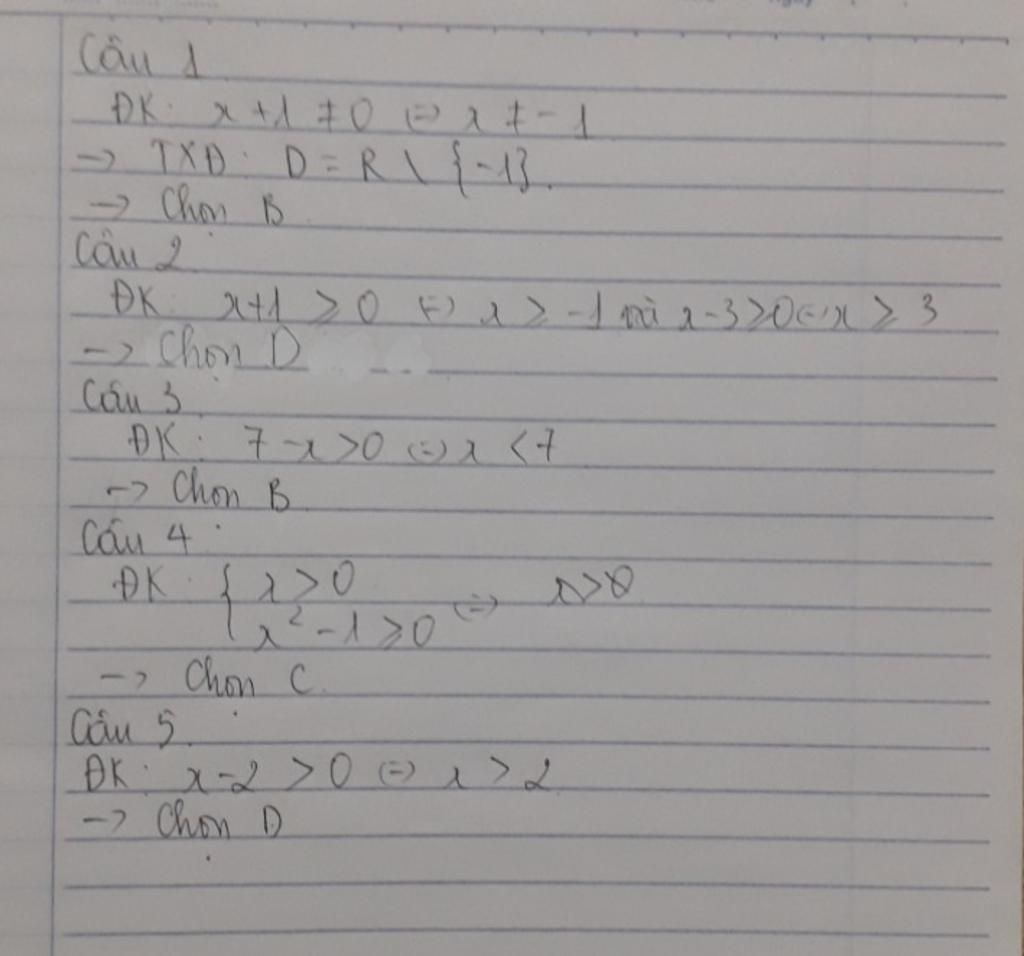 Câu 1
ĐK: x+1 ≠ 0 ⇔ x ≠ -1
→ TXĐ: D = R \ {-1}.
→ Chọn B
Câu 2
ĐK: x+1 ≥ 0 ⇔ x ≥ -1 mà x-3≥0 ⇔ x ≥ 3
→ Chọn D
Câu 3
ĐK: 7-x>0 ⇔ x < 7
→ Chọn B
Câu 4
ĐK: { x > 0
x² - 1 ≥ 0 ⇔ x>0
→ Chọn C.
Câu 5
ĐK: x-2 > 0 ⇔ x > 2
→ Chọn D